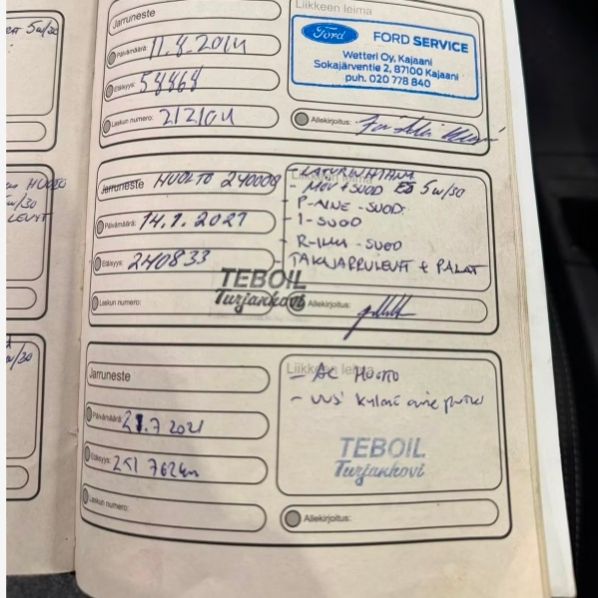 5w/30
Jarruneste
Liikkeen leima
Päivämäärä: 11.8.2014
Ford FORD SERVICE
Wetteri Oy, Kajaani
Sokajärventie 2, 87100 Kajaani
puh. 020 778 840
Etäisyys: 58868
Laskun numero:
Allekirjoitus:
HUOLTO
w/30
Jarruneste HUOLTO 240000
Liikkeen leima
- LATURINHIHNA
- MOV+SUOD 5w/30
Päivämäärä: 14.1.2021
- P-AINE-SUOD.
- I-SUOD
Etäisyys: 240833
- R-ILMA-SUOD
- TAKAJARRULEVYT + PALAT
TEBOIL
Turjankovi
Laskun numero:
Allekirjoitus:
w/30
Jarruneste
Liikkeen leima
- AC HUOLTO
Päivämäärä: 21.7 2021
- UUSI
Etäisyys: 251 762km
TEBOIL
Turjankovi
Laskun numero:
Allekirjoitus: